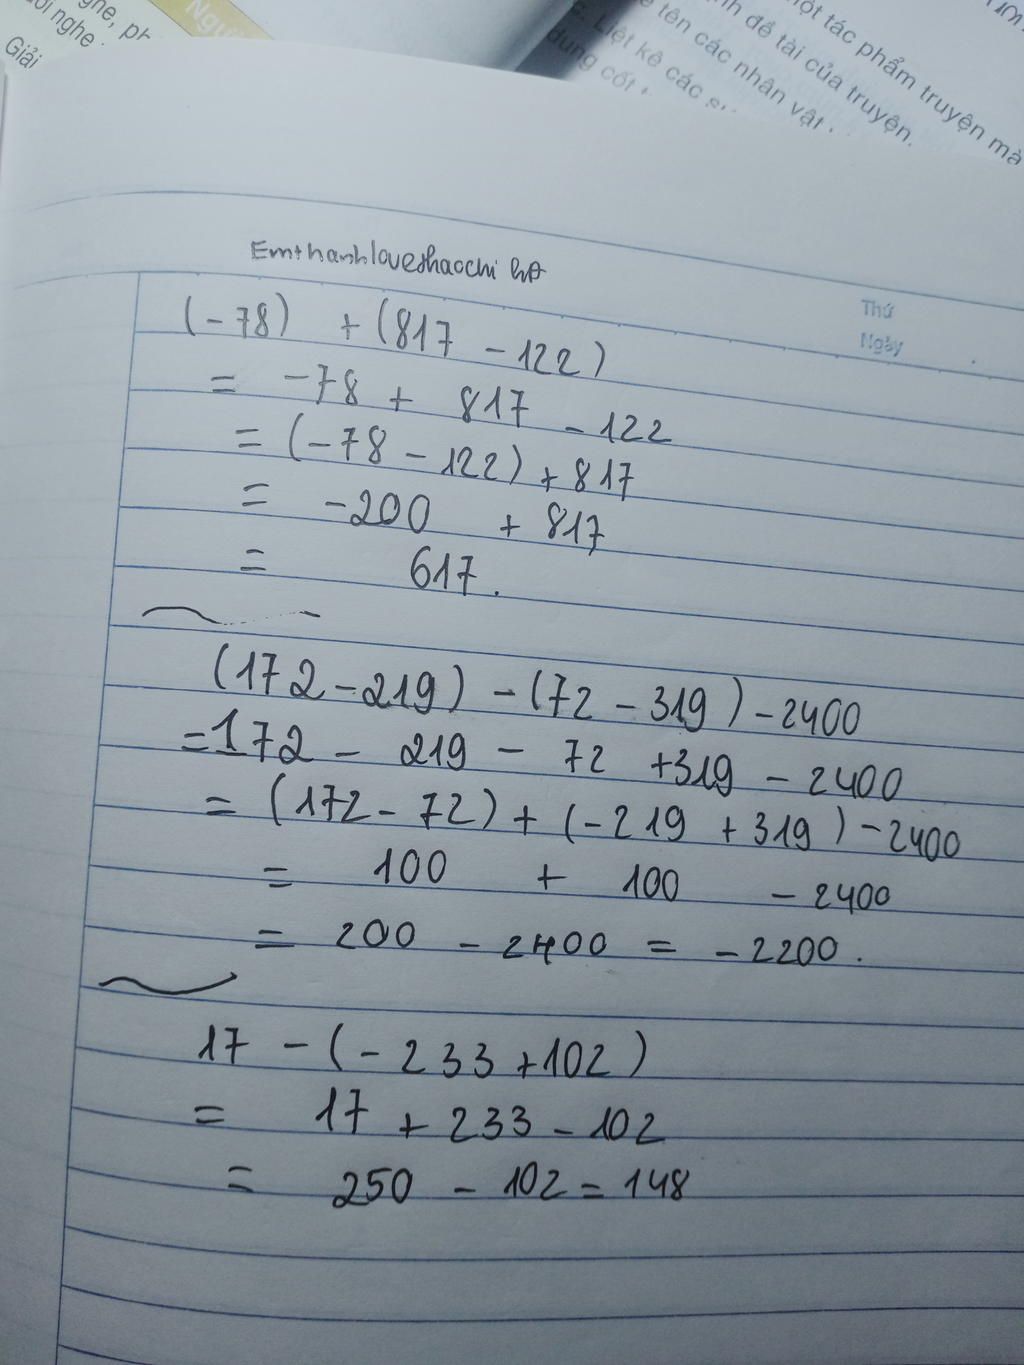 ghe, ph
ơi nghe
Giải
Ngư
một tác phẩm truyện mà
định đề tài của truyện.
ê tên các nhân vật
Liệt kê các sự
dung cốt t
Emthanhloveshaochi
Thứ
Ngày
(-78) + (817 - 122)
= -78 + 817 - 122
= (-78 - 122) + 817
= -200 + 817
= 617.
(172 - 219) - (72 - 319) - 2400
= 172 - 219 - 72 + 319 - 2400
= (172 - 72) + (-219 + 319) - 2400
= 100 + 100 - 2400
= 200 - 2400 = -2200.
17 - (-233 + 102)
= 17 + 233 - 102
= 250 - 102 = 148